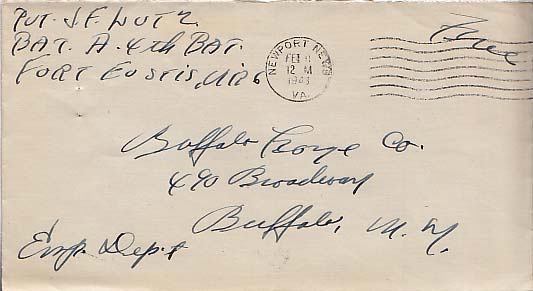 Pvt. J F Lutz
Bat. A. 4th Bat.
Fort Eustis, Virg
NEWPORT NEWS
FEB
12 M
1943
VA.
Free
Buffalo Forge Co.
490 Broadway
Buffalo, N. Y.
Emp. Dept